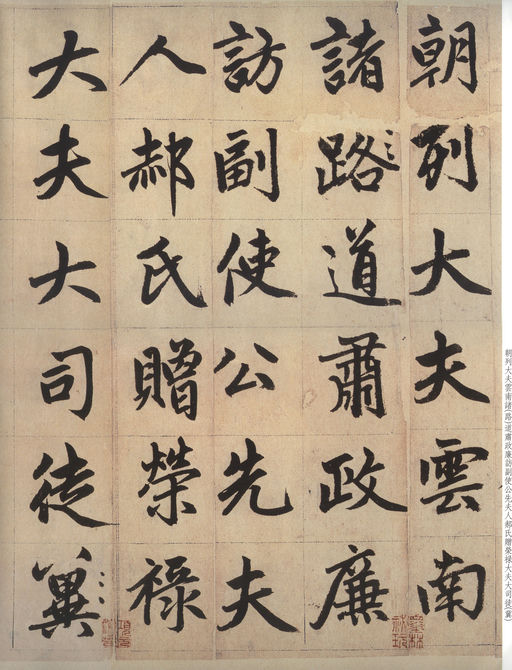 朝列大夫雲南
諸路道肅政廉
訪副使公先夫
人郝氏贈榮祿
大夫大司徒冀
朝列大夫雲南諸(路)道肅政廉訪副使公先夫人郝氏贈榮祿大夫大司徒(冀)